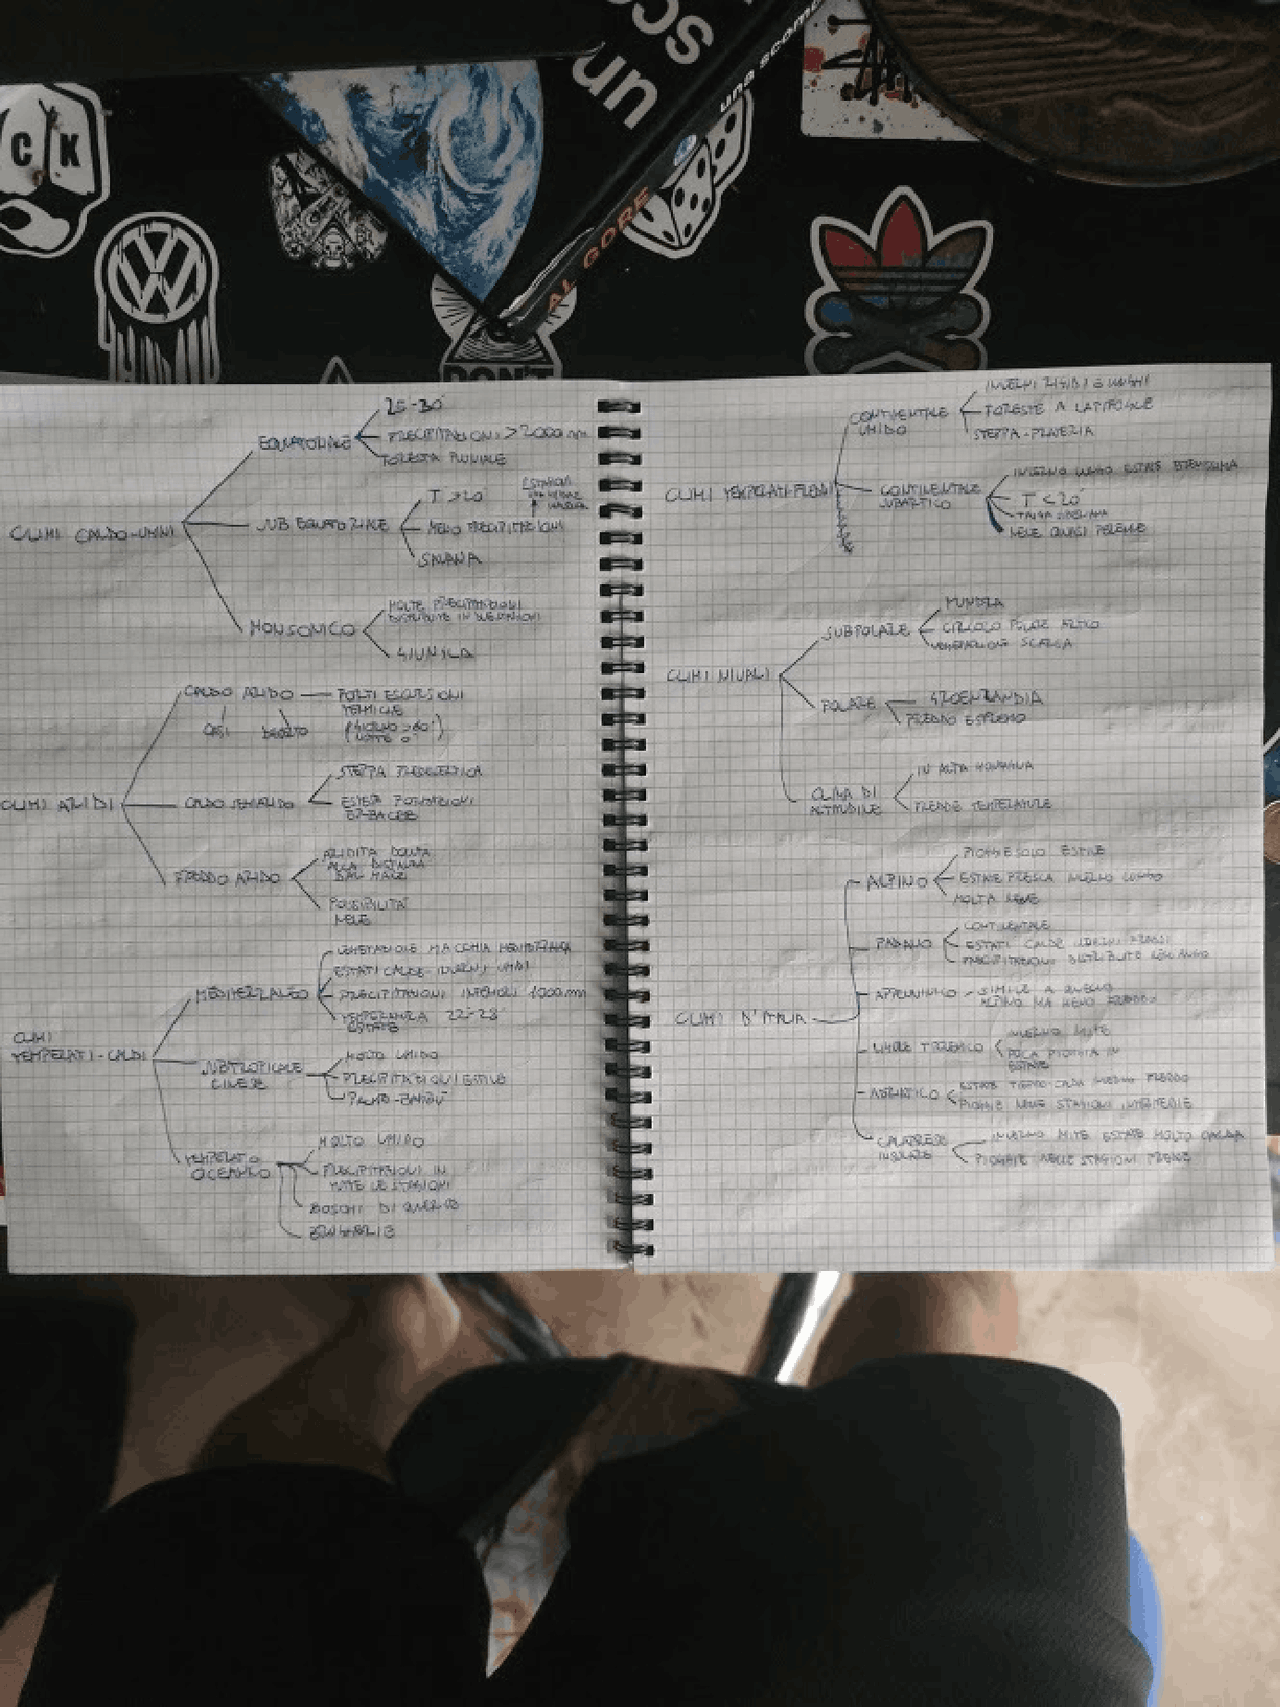 CK
un
sco
una scomo
AL GORE
DON'T
EQUATORIALE
25-30°
PRECIPITAZIONI > 2000 mm
FORESTA PLUVIALE
CLIMI CALDO-UMIDI
SUB EQUATORIALE
T > 20°
MENO PRECIPITAZIONI
SAVANA
MONSONICO
MOLTE PRECIPITAZIONI
DISTRIBUITE IN DUE STAGIONI
GIUNGLA
CLIMI ARIDI
CALDO ARIDO
FORTI ESCURSIONI
TERMICHE
(GIORNO > 50°
NOTTE 0°)
OASI DESERTO
CALDO SEMIARIDO
STEPPA PREDESERTICA
ESTESE FORMAZIONI
ERBACEE
FREDDO ARIDO
ARIDITÀ DOVUTA
ALLA DISTANZA
DAL MARE
POSSIBILITÀ
NEVE
CLIMI
TEMPERATI-CALDI
MEDITERRANEO
VEGETAZIONE MACCHIA MEDITERRANEA
ESTATI CALDE-INVERNI UMIDI
PRECIPITAZIONI INFERIORI 1000 mm
TEMPERATURA 22°-28°
ESTATE
SUBTROPICALE
CINESE
MOLTO UMIDO
PRECIPITAZIONI ESTIVE
PALME-BAMBÙ
TEMPERATO
OCEANICO
MOLTO UMIDO
PRECIPITAZIONI IN
TUTTE LE STAGIONI
BOSCHI DI QUERCE
BRUGHIERE
CLIMI TEMPERATI-FREDDI
CONTINENTALE
UMIDO
INVERNI RIGIDI E LUNGHI
FORESTE A LATIFOGLIE
STEPPA-PRATERIA
CONTINENTALE
SUBARTICO
INVERNO LUNGO ESTATE BREVISSIMA
T < 20°
TAIGA SIBERIANA
NEVE QUASI PERENNE
CLIMI NIVALI
SUBPOLARE
TUNDRA
CIRCOLO POLARE ARTICO
VEGETAZIONE SCARSA
POLARE
GROENLANDIA
FREDDO ESTREMO
CLIMA DI
ALTITUDINE
IN ALTA MONTAGNA
FREDDE TEMPERATURE
CLIMI D'ITALIA
ALPINO
PIOGGE SOLO ESTIVE
ESTATE FRESCA INVERNO LUNGO
MOLTA NEVE
PADANO
CONTINENTALE
ESTATI CALDE INVERNI FREDDI
PRECIPITAZIONI DISTRIBUITE NELL'ANNO
APPENNINICO
SIMILE A QUELLO
ALPINO MA MENO FREDDO
LIGURE TIRRENICO
INVERNO MITE
POCA PIOGGIA IN
ESTATE
ADRIATICO
INVERNO FREDDO
PIOGGIE NELLE STAGIONI INTERMEDIE
CALABRESE
INSULARE
INVERNO MITE ESTATE MOLTO CALDA
PIOGGIE NELLE STAGIONI FREDDE